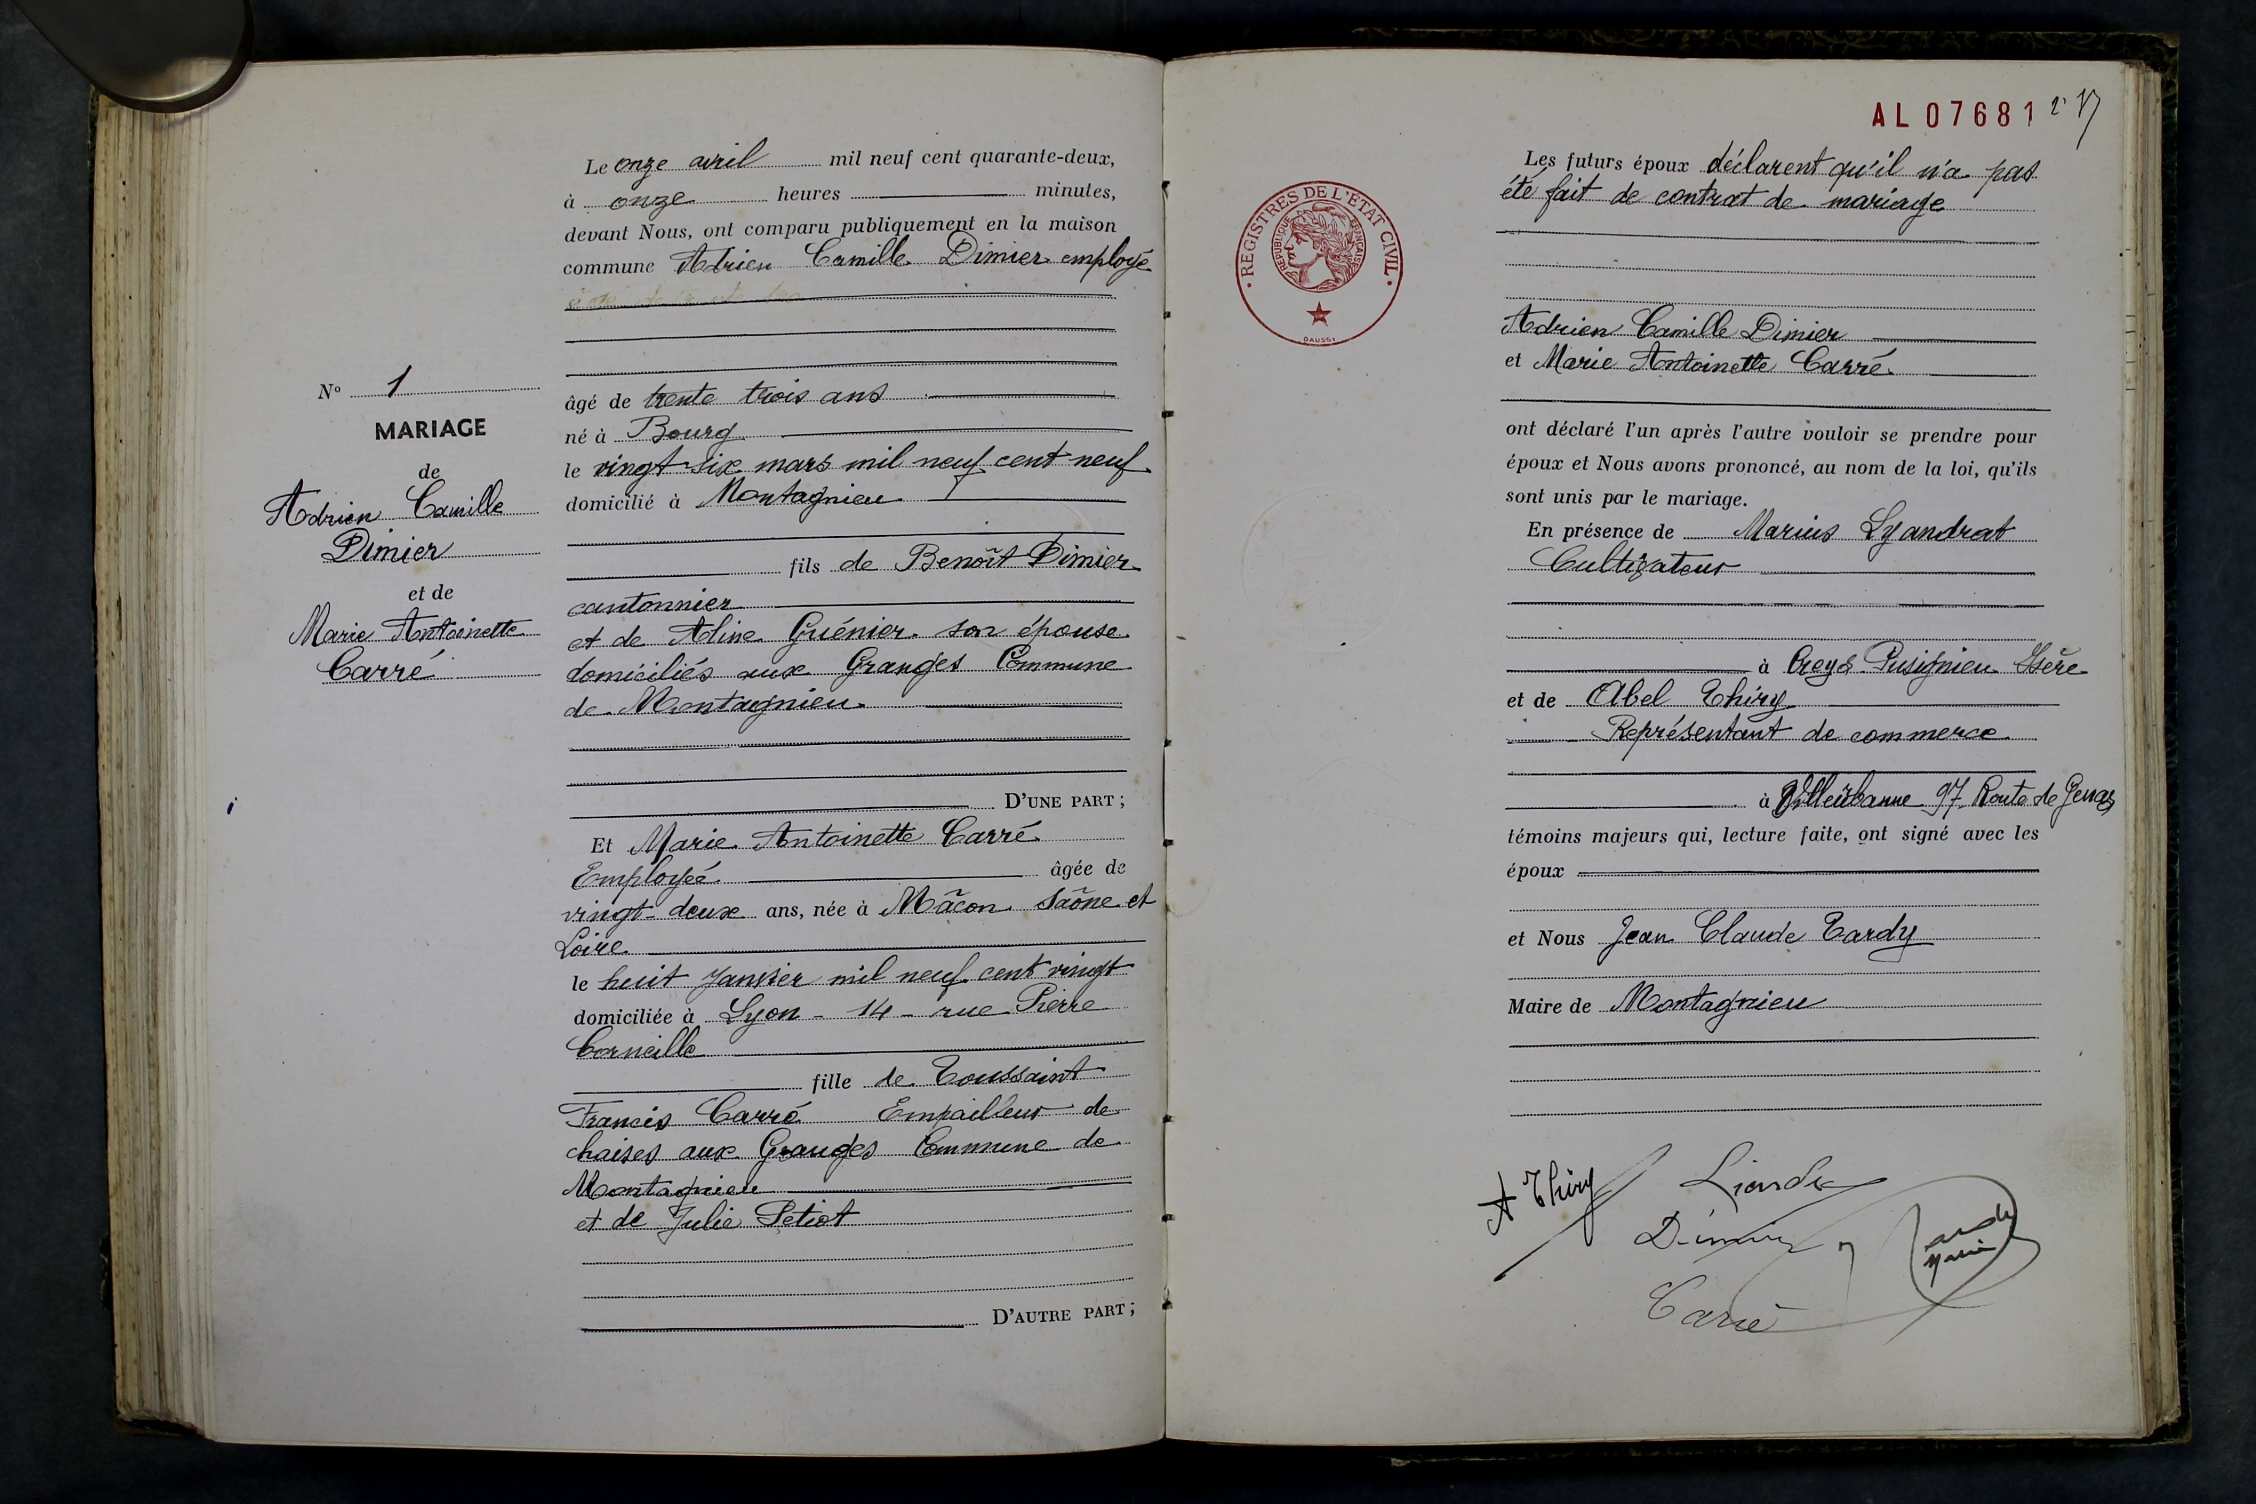 Le onze avril mil neuf cent quarante-deux,
à onze heures minutes,
devant Nous, ont comparu publiquement en la maison
commune Adrien Camille Dimier employé
âgé de trente trois ans
né à Bourg
le vingt-six mars mil neuf cent neuf
domicilié à Montagnieu
fils de Benoît Dimier
cantonnier
et de Aline Guénier son épouse
domiciliés aux Granges Commune
de Montagnieu
D'UNE PART ;
N° 1
MARIAGE
de
Adrien Camille
Dimier
et de
Marie Antoinette
Carré
Et Marie Antoinette Carré
Employée âgée de
vingt-deux ans, née à Mâcon Saône et
Loire
le huit janvier mil neuf cent vingt
domiciliée à Lyon - 14 - rue Pierre
Corneille
fille de Toussaint
Francis Carré Empailleur de
chaises aux Granges Commune de
Montagnieu
et de Julie Petiot
D'AUTRE PART ;
AL07681
REGISTRES DE L'ÉTAT CIVIL
RÉPUBLIQUE FRANÇAISE
DAUSSY
Les futurs époux déclarent qu'il n'a pas
été fait de contrat de mariage
Adrien Camille Dimier
et Marie Antoinette Carré
ont déclaré l'un après l'autre vouloir se prendre pour
époux et Nous avons prononcé, au nom de la loi, qu'ils
sont unis par le mariage.
En présence de Marius Lyandrat
Cultivateur
à Creys-Pusignieu Isère
et de Abel Thiry
Représentant de commerce
à Villeurbanne 97 Route de Genas
témoins majeurs qui, lecture faite, ont signé avec les
époux
et Nous Jean Claude Tardy
Maire de Montagnieu
A Thiry
Dimier
Carré